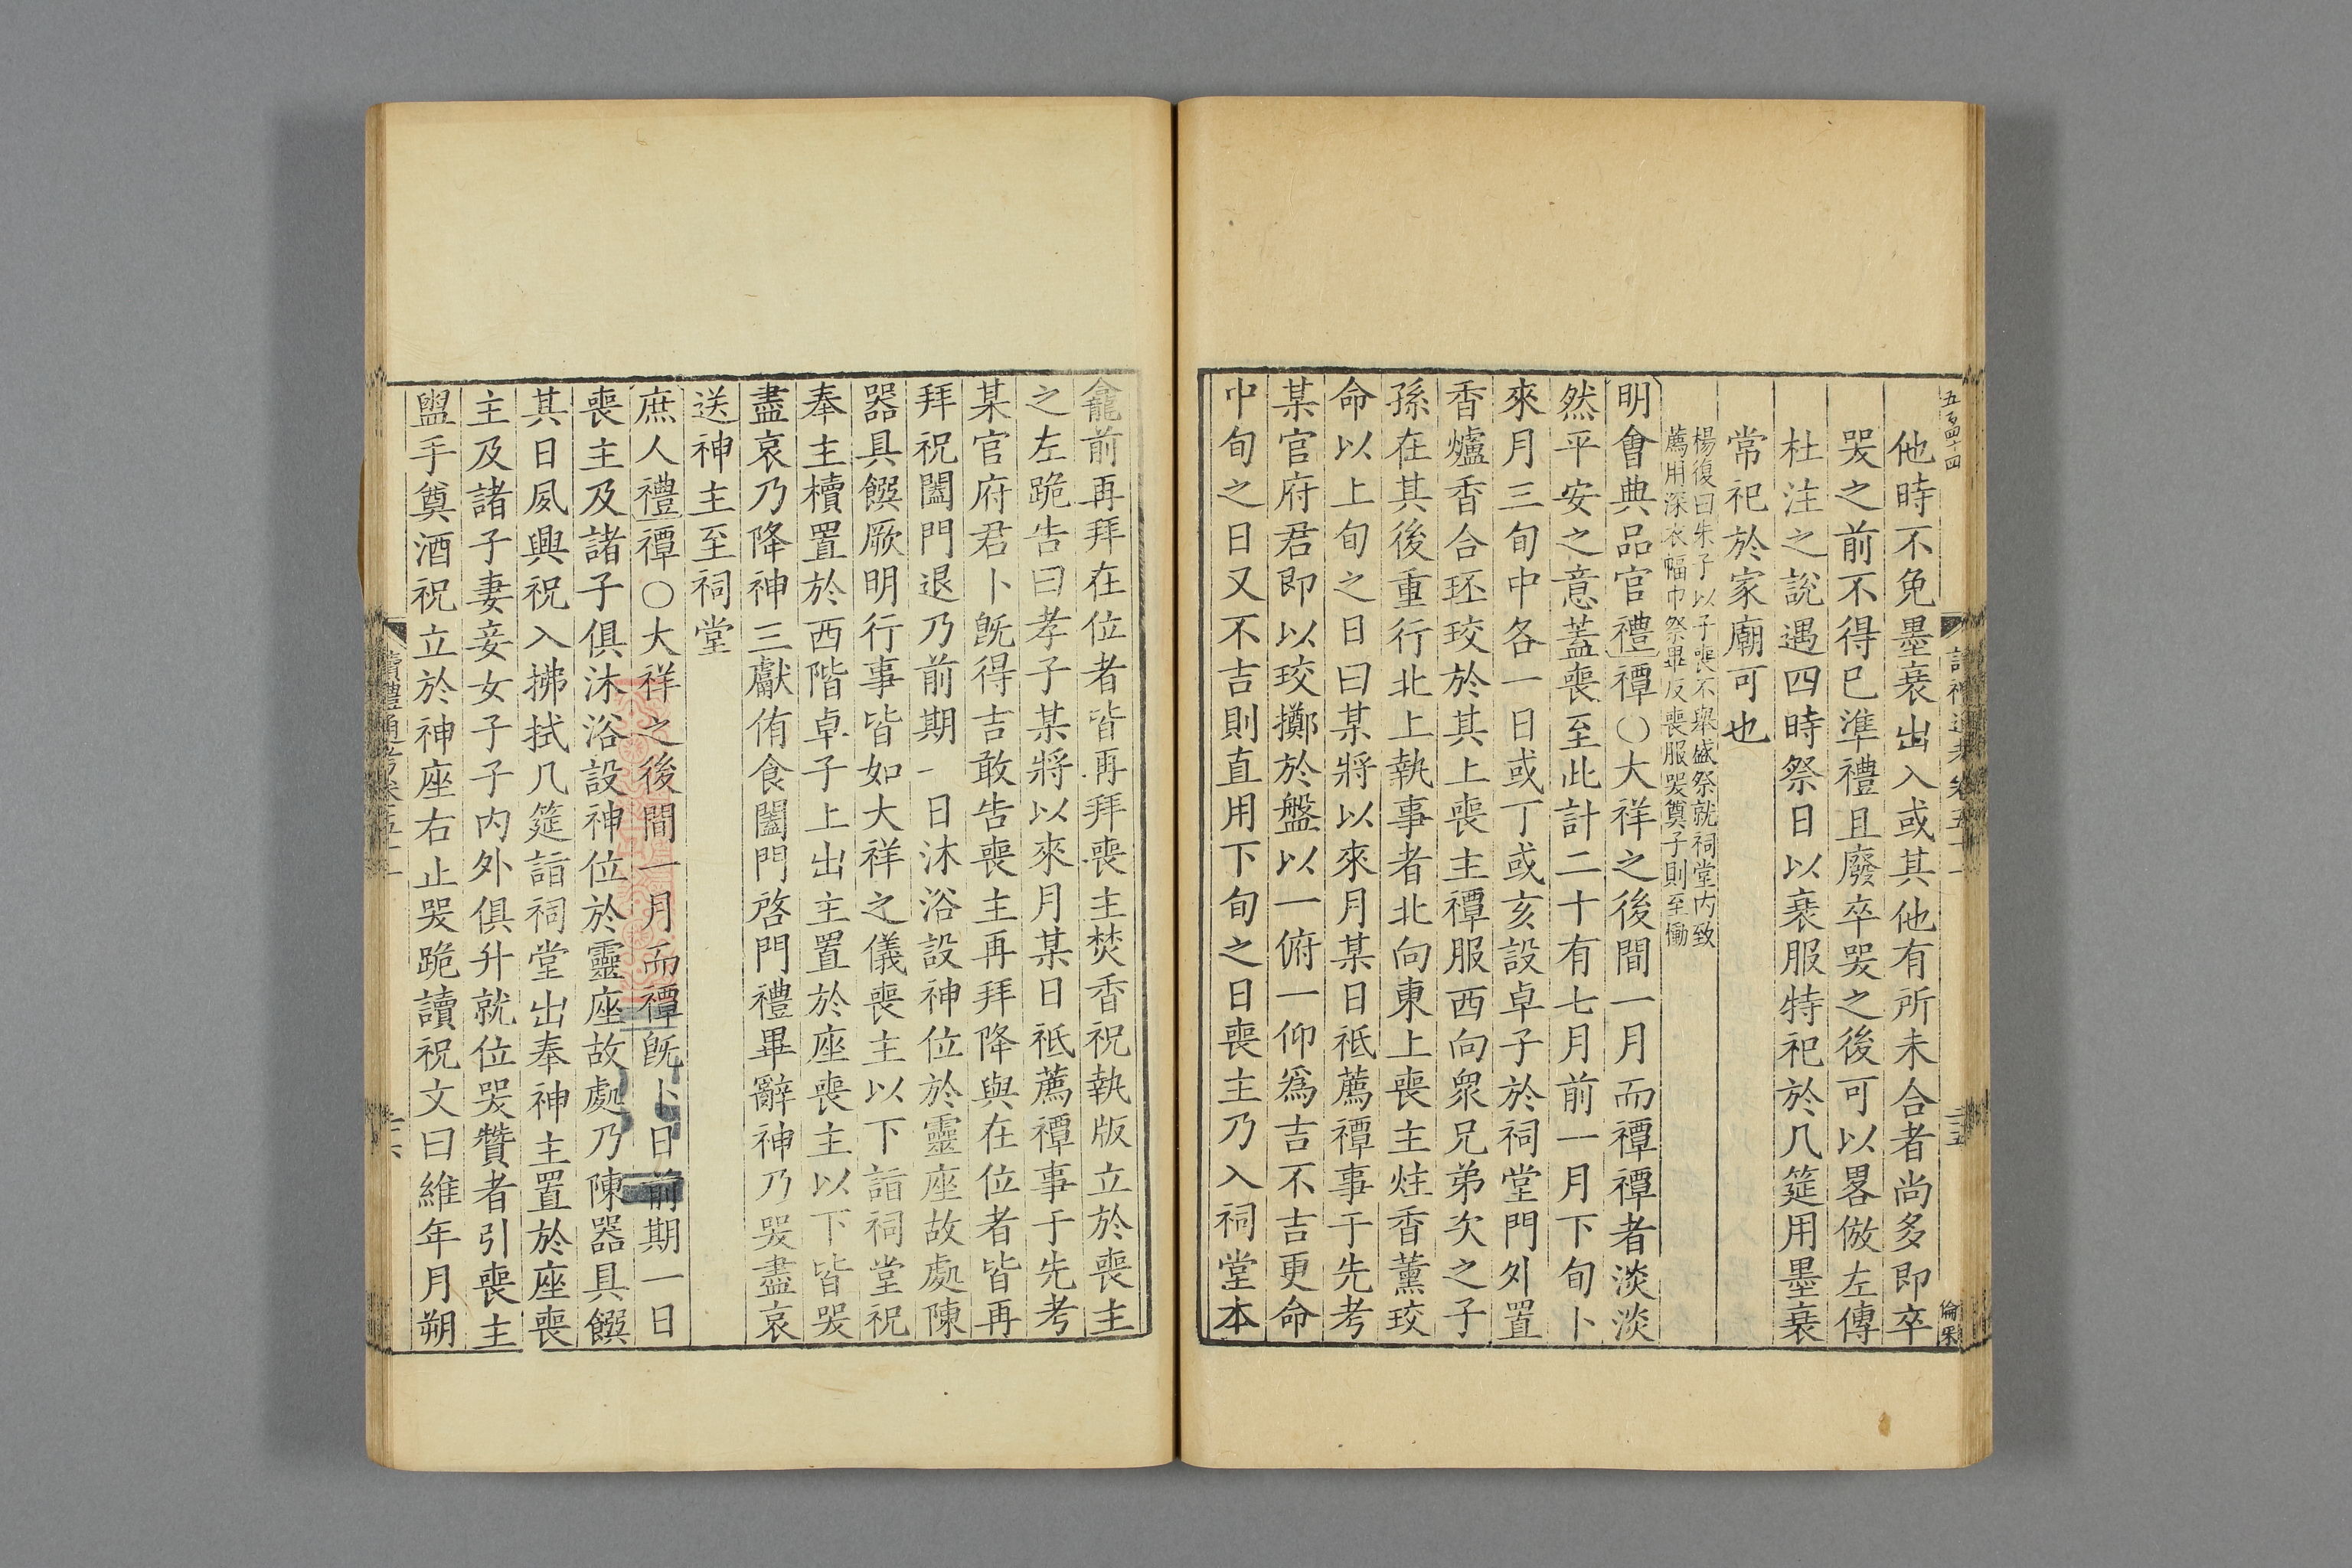 五百四十四
讀禮通考卷五十一
二十五
倫采
他時不免墨衰出入或其他有所未合者尚多即卒
哭之前不得已準禮且廢卒哭之後可以畧倣左傳
杜注之說遇四時祭日以衰服特祀於几筵用墨衰
常祀於家廟可也
楊復曰朱子以子喪不舉盛祭就祠堂内致
薦用深衣幅巾祭畢反喪服哭奠子則至慟
明會典品官禮禫○大祥之後間一月而禫禫者淡淡
然平安之意蓋喪至此計二十有七月前一月下旬卜
來月三旬中各一日或丁或亥設卓子於祠堂門外置
香爐香合珓珓於其上喪主禫服西向衆兄弟次之子
孫在其後重行北上執事者北向東上喪主炷香薰珓
命以上旬之日曰某將以來月某日祗薦禫事于先考
某官府君即以珓擲於盤以一俯一仰爲吉不吉更命
中旬之日又不吉則直用下旬之日喪主乃入祠堂本
龕前再拜在位者皆再拜喪主焚香祝執版立於喪主
之左跪告曰孝子某將以來月某日祗薦禫事于先考
某官府君卜既得吉敢告喪主再拜降與在位者皆再
拜祝闔門退乃前期一日沐浴設神位於靈座故處陳
器具饌厥明行事皆如大祥之儀喪主以下詣祠堂祝
奉主櫝置於西階卓子上出主置於座喪主以下皆哭
盡哀乃降神三獻侑食闔門啓門禮畢辭神乃哭盡哀
送神主至祠堂
庶人禮禫○大祥之後間一月而禫既卜日前期一日
喪主及諸子俱沐浴設神位於靈座故處乃陳器具饌
其日夙興祝入拂拭几筵詣祠堂出奉神主置於座喪
主及諸子妻妾女子子内外俱升就位哭贊者引喪主
盥手奠酒祝立於神座右止哭跪讀祝文曰維年月朔
讀禮通考卷五十一
二十六